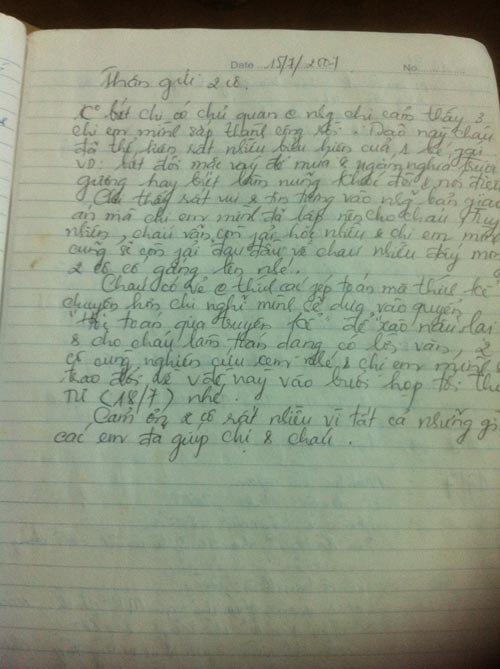 Date 15/7/2007 No.
Thân gửi 2 cô.
K° biết chị có chủ quan o nhg chị cảm thấy 3
chị em mình sắp thành công rồi. Dạo này cháu
đã thể hiện rất nhiều biểu hiện của 1 bé gái
VD: bắt đầu mặc váy để múa & ngắm nghía trước
gương hay biết làm nũng khóc đòi & nói điệu
Chị thấy rất vui & tin tưởng vào nhg bản giáo
án mà chị em mình đã lập nên cho cháu. Tuy
nhiên, cháu vẫn còn fải học nhiều & chị em mình
cũng sẽ còn fải đau đầu về cháu nhiều đấy mong
2 cô cố gắng lên nhé.
Cháu có vẻ o thích các fép toán mà thích kể
chuyện hơn chị nghĩ mình sẽ dựa vào quyển
"Thơ toán qua truyện kể" để xào nấu lại
& cho cháu làm toán dạng có lời văn, 2
cô cùng nghiên cứu xem nhé & chị em mình sẽ
trao đổi về vđề này vào buổi họp tối thứ
Tư (18/7) nhé.
Cám ơn 2 cô rất nhiều vì tất cả những gì
các em đã giúp chị & cháu.